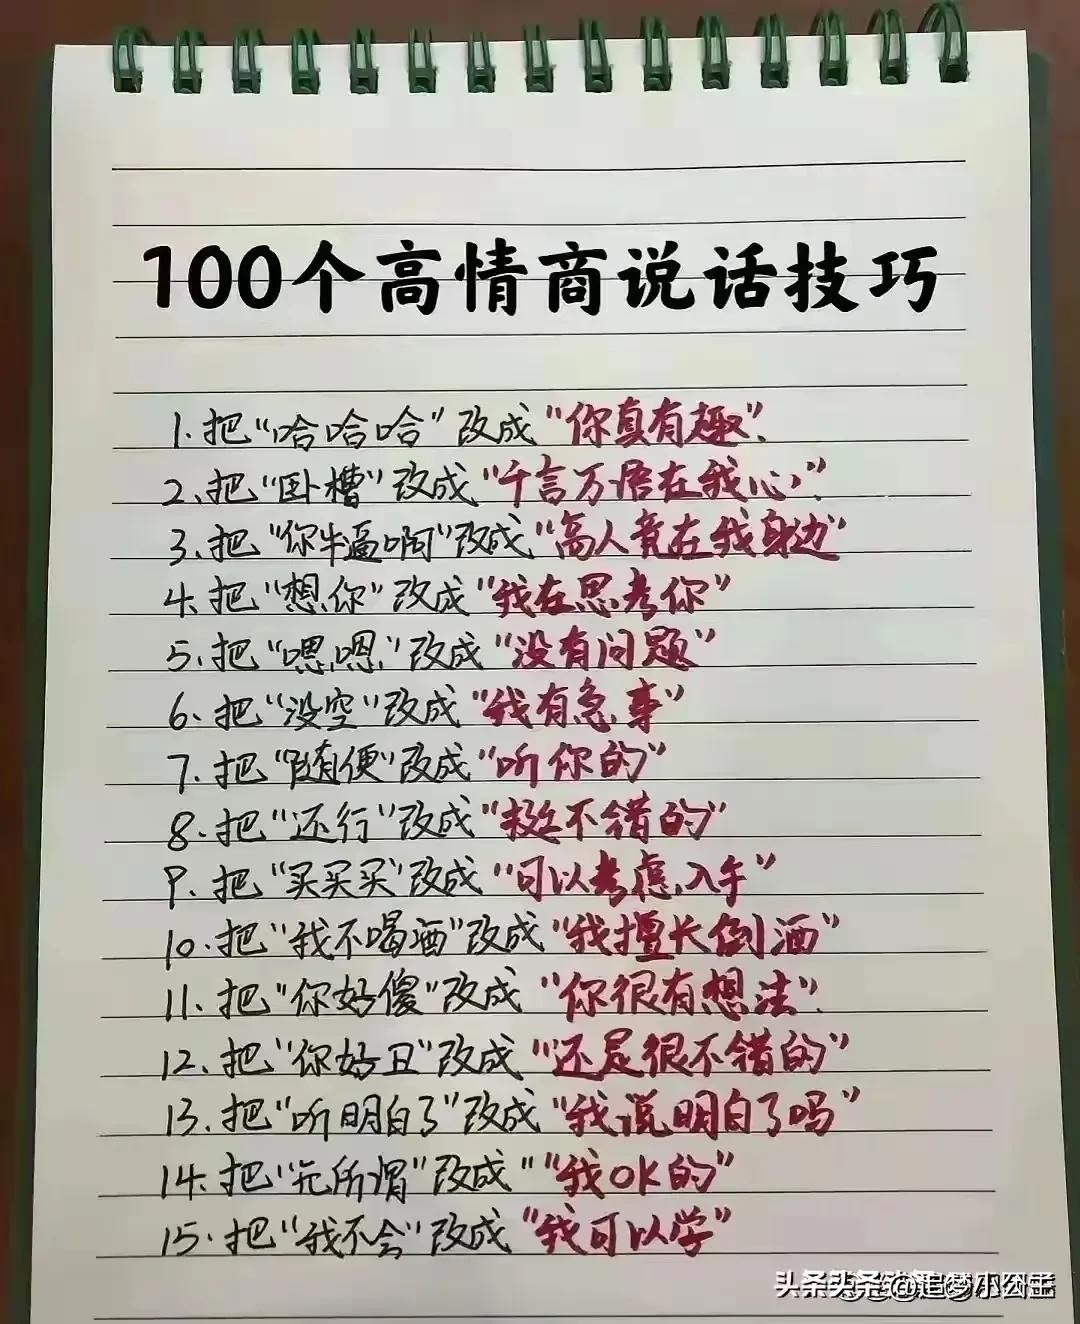 100个高情商说话技巧
1.把“哈哈哈”改成“你真有趣”.
2.把“卧槽”改成“千言万语在我心”.
3.把“你牛逼啊”改成“高人竟在我身边”
4.把“想你”改成“我在思考你”
5.把“嗯嗯”改成“没有问题”
6.把“没空”改成“我有急事”
7.把“随便”改成“听你的”
8.把“还行”改成“挺不错的”
9.把“买买买”改成“可以考虑入手”
10.把“我不喝酒”改成“我擅长倒酒”
11.把“你好傻”改成“你很有想法”.
12.把“你好丑”改成“还是很不错的”
13.把“听明白了”改成“我说明白了吗”
14.把“无所谓”改成““我OK的”
15.把“我不会”改成“我可以学”
头条 @追梦小公主